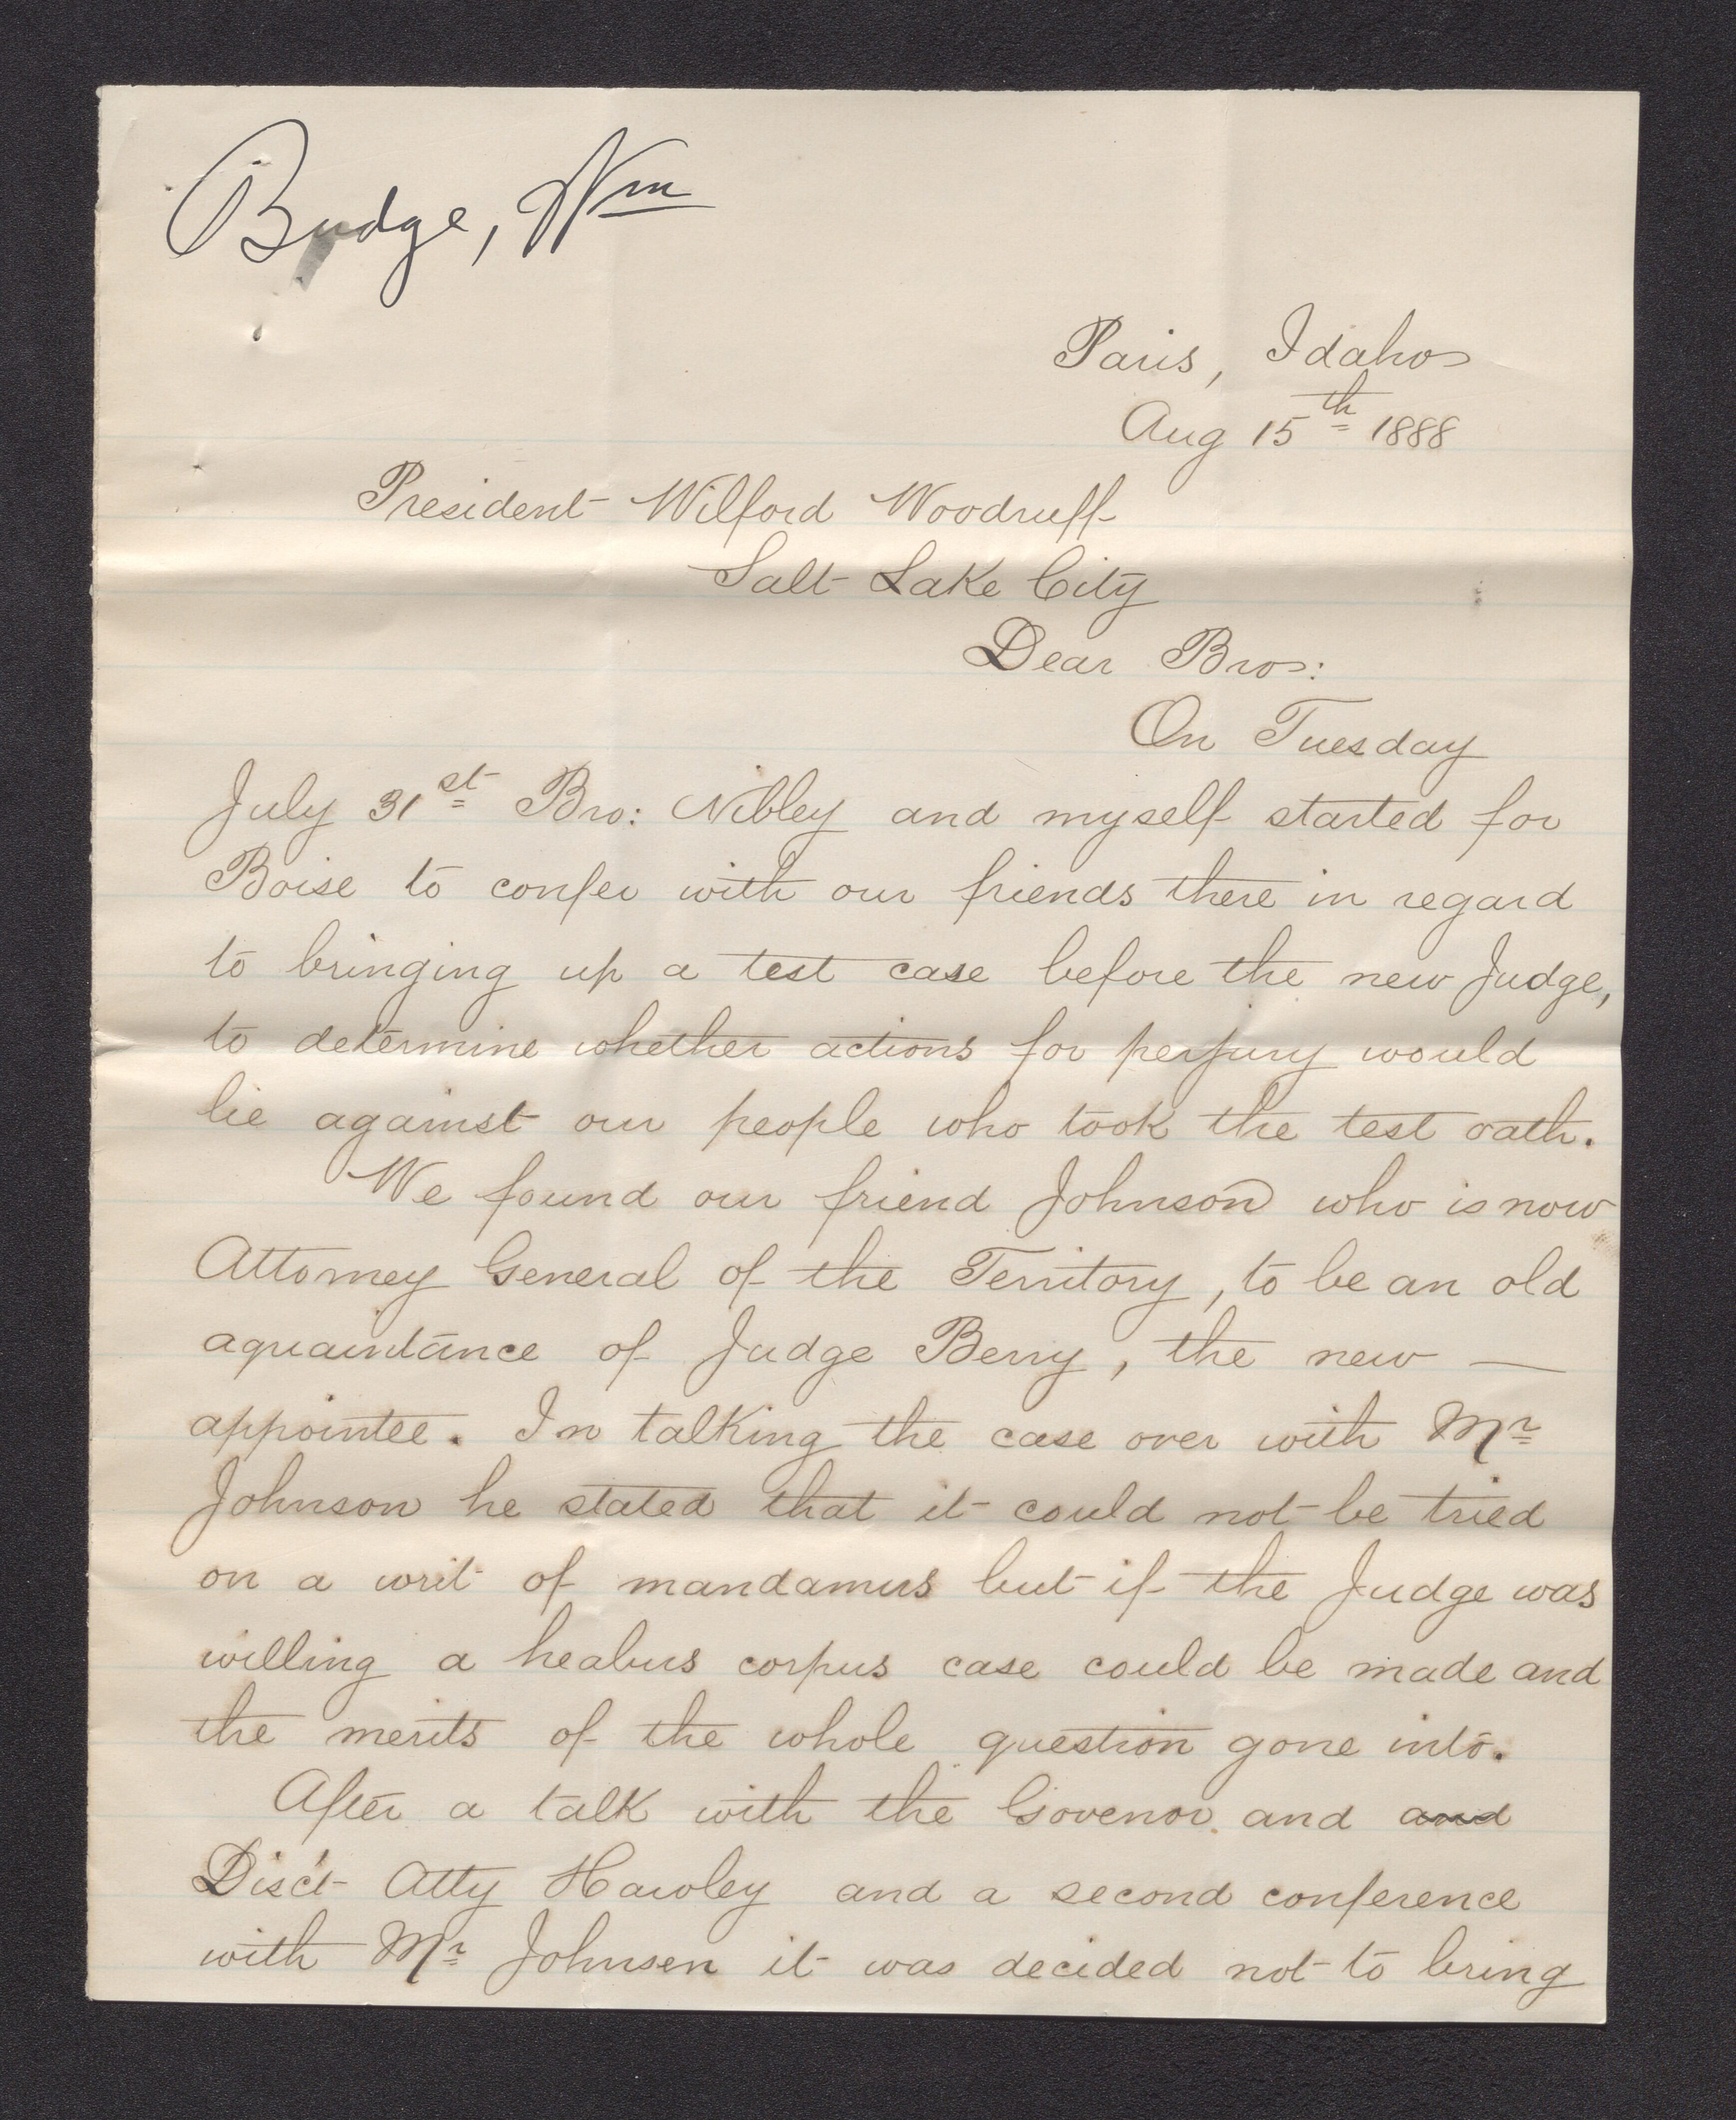 Budge, Wm
Paris, Idaho
Aug 15th 1888
President Wilford Woodruff
Salt Lake City
Dear Bro:
On Tuesday
July 31st Bro: Nibley and myself started for
Boise to confer with our friends there in regard
to bringing up a test case before the new Judge,
to determine whether actions for perjury would
lie against our people who took the test oath.
We found our friend Johnson who is now
Attorney General of the Territory, to be an old
aquaintance of Judge Berry, the new —
appointee. In talking the case over with Mr
Johnson he stated that it could not be tried
on a writ of mandamus but if the Judge was
willing a heabus corpus case could be made and
the merits of the whole question gone into.
After a talk with the Govenor and and
Disct Atty Hawley and a second conference
with Mr Johnsen it was decided not to bring